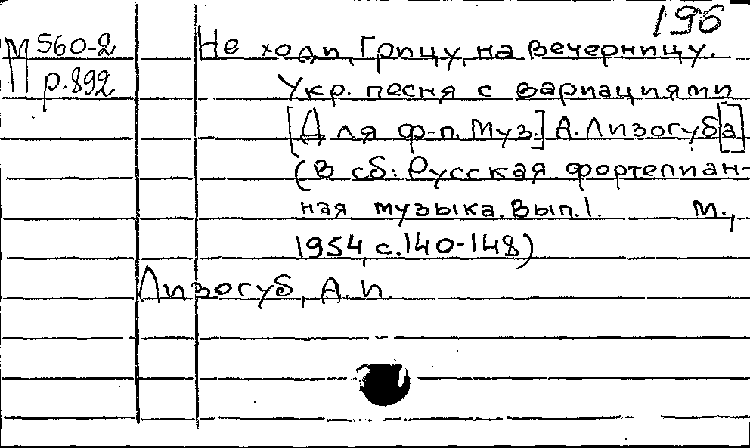 196
М 560-2
р.892
Не ходи, Грицу, на вечерницу.
Укр. песня с вариациями
[Для ф-п. Муз.] А. Лизогуб[а]
(В сб: Русская фортепиан-
ная музыка. Вып. 1. М.,
1954, с. 140-148)
Лизогуб, А. И.